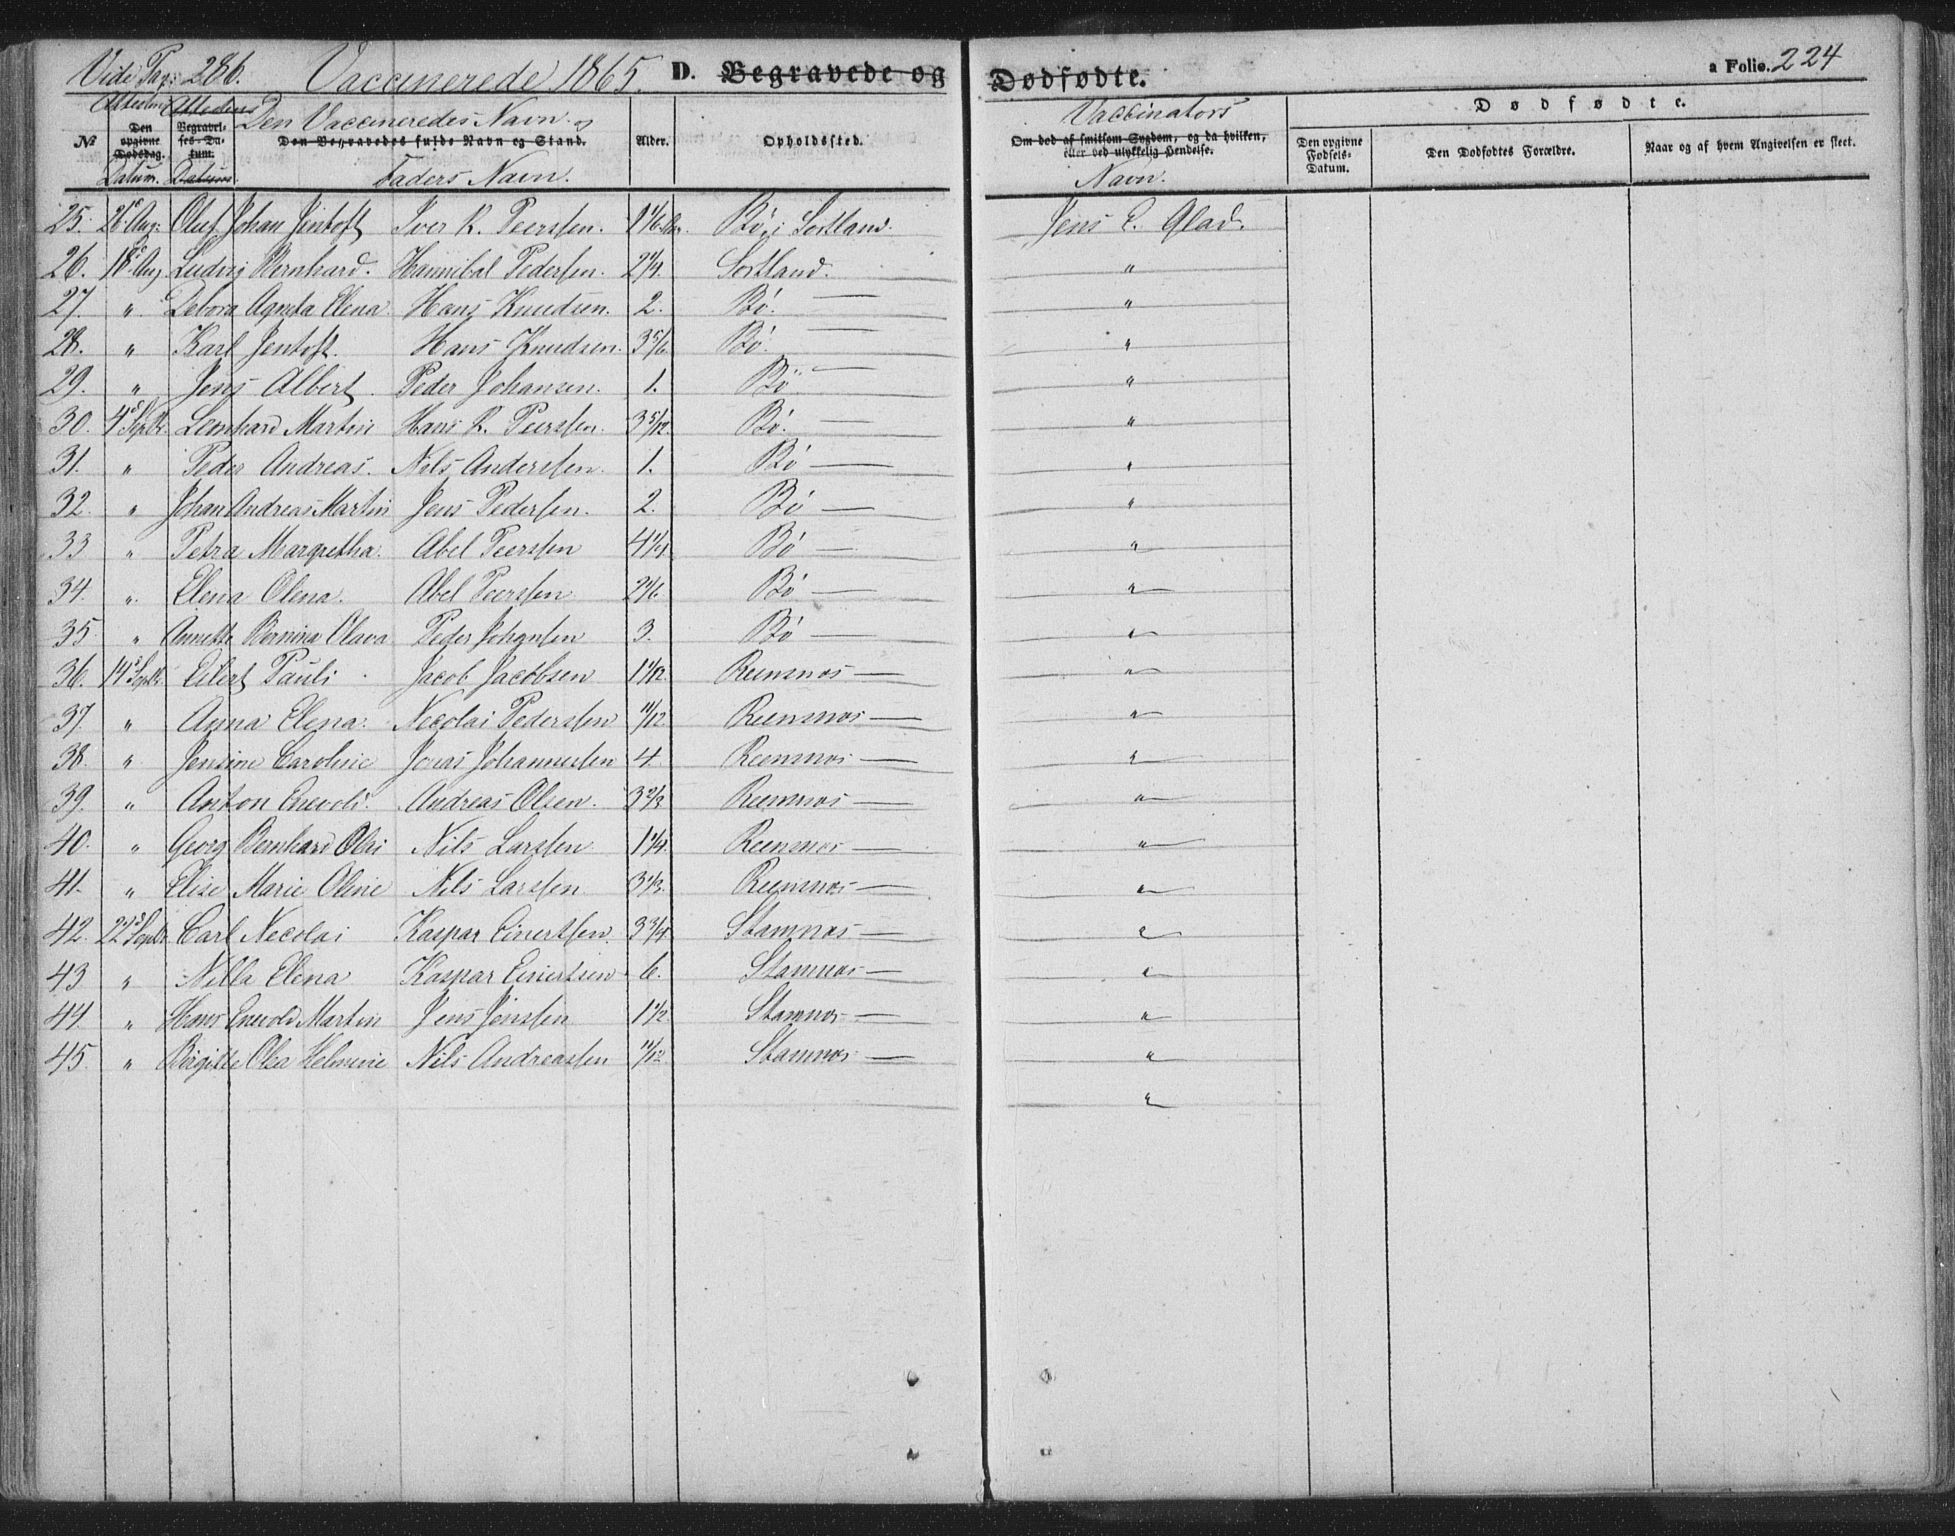 Vide Pag: 286. Vaccinerede 1865. D. Begravede og Dødfødte. a Folio. 224
Attestens Attestens Den Vaccineredes Navn og Vaccinators Dødfødte.
№ Den opgivne Dødsdag. Begravelses-Datum. Den Begravedes fulde Navn og Stand. Alder. Opholdssted. Om død af smitsom Sygdom, og da hvilken, eller ved ulykkelig Hendelse. Den opgivne Fødsels-Datum. Den Dødfødtes Forældre. Naar og af hvem Angivelsen er skeet.
Datum. Datum. Faders Navn. Navn.
25. 26de Aug: Oluf Johan Jentoft Iver R. Peersen. 1 1/6 Aar. Bø, i Sortland. Jens E. Glad.
26. 18de Aug Ludvig Bernhard. Hannibal Pedersen. 2 1/4. Sortland. "
27. " Debora Agneta Elena. Hans Knudsen. 2. Bø. — "
28. " Karl Jentoft. Hans Knudsen. 3 5/6 Bø. — "
29. " Jens Albert. Peder Johansen. 1. Bø — "
30. 4de Septbr. Leonhard Martin Hans R. Peersen. 3 5/12. Bø. — "
31. " Peder Andreas. Nils Andersen. 1. Bø — "
32. " Johan Andreas Martin Jens Pedersen. 2. Bø — "
33 " Petra Margretha. Abel Peersen 4 1/4 Bø — "
34. " Elena Olena. Abel Peersen 2 1/6. Bø — "
35 " Annette Bernina Olava Peder Johansen 3. Bø — "
36. 14de Septbr. Eilert Pauli Jacob Jacobsen 1 1/12 Reensnos — "
37. " Anna Elena. Necolai Pedersen 11/12 Reensnos — "
38. " Jensine Caroline Jonas Johannesen 4. Reensnos — "
39. " Anton Enevold. Andreas Olsen. 3 2/3. Reensnos — "
40. " Georg Bernhard Olai Nils Larsen 1 1/4. Reensnos — "
41. " Elise Marie Oline Nils Larsen 3 1/3. Reensnos — "
42. 22de Septbr Carl Necolai Kaspar Einertsen. 3 3/4. Stamnos — "
43 " Nilla Elena Kaspar Einertsen 6. Stamnos — "
44 " Hans Enevold Martin Jens Jensen 1 1/2. Stamnos — "
45. " Birgitte Olea Helmine Nils Andreassen 11/12 Stamnos — "
"